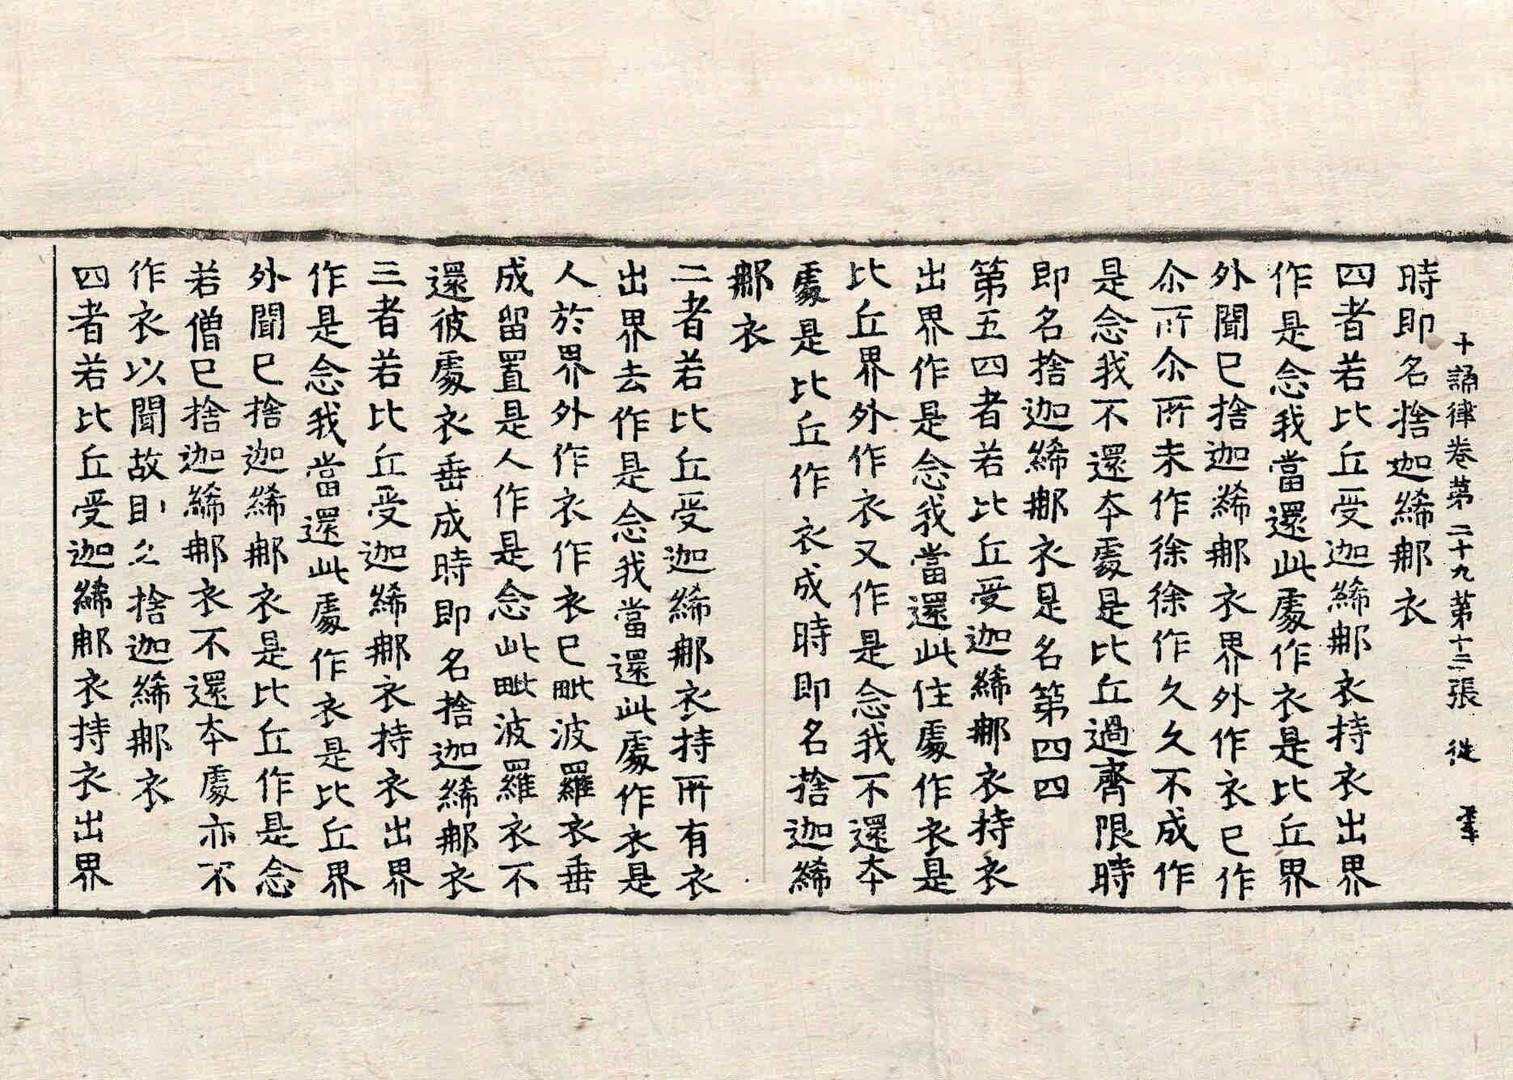 十誦律卷第二十九第十三張　從
時即名捨迦絺那衣
四者若比丘受迦絺那衣持衣出界
作是念我當還此處作衣是比丘界
外聞已捨迦絺那衣界外作衣已作
尒所尒所未作徐徐作久久不成作
是念我不還本處是比丘過齊限時
即名捨迦絺那衣是名第四四
第五四者若比丘受迦絺那衣持衣
出界作是念我當還此住處作衣是
比丘界外作衣又作是念我不還本
處是比丘作衣成時即名捨迦絺
那衣
二者若比丘受迦絺那衣持所有衣
出界去作是念我當還此處作衣是
人於界外作衣作衣已毗波羅衣垂
成留置是人作是念此毗波羅衣不
還彼處衣垂成時即名捨迦絺那衣
三者若比丘受迦絺那衣持衣出界
作是念我當還此處作衣是比丘界
外聞已捨迦絺那衣是比丘作是念
若僧已捨迦絺那衣不還本處亦不
作衣以聞故即名捨迦絺那衣
四者若比丘受迦絺那衣持衣出界